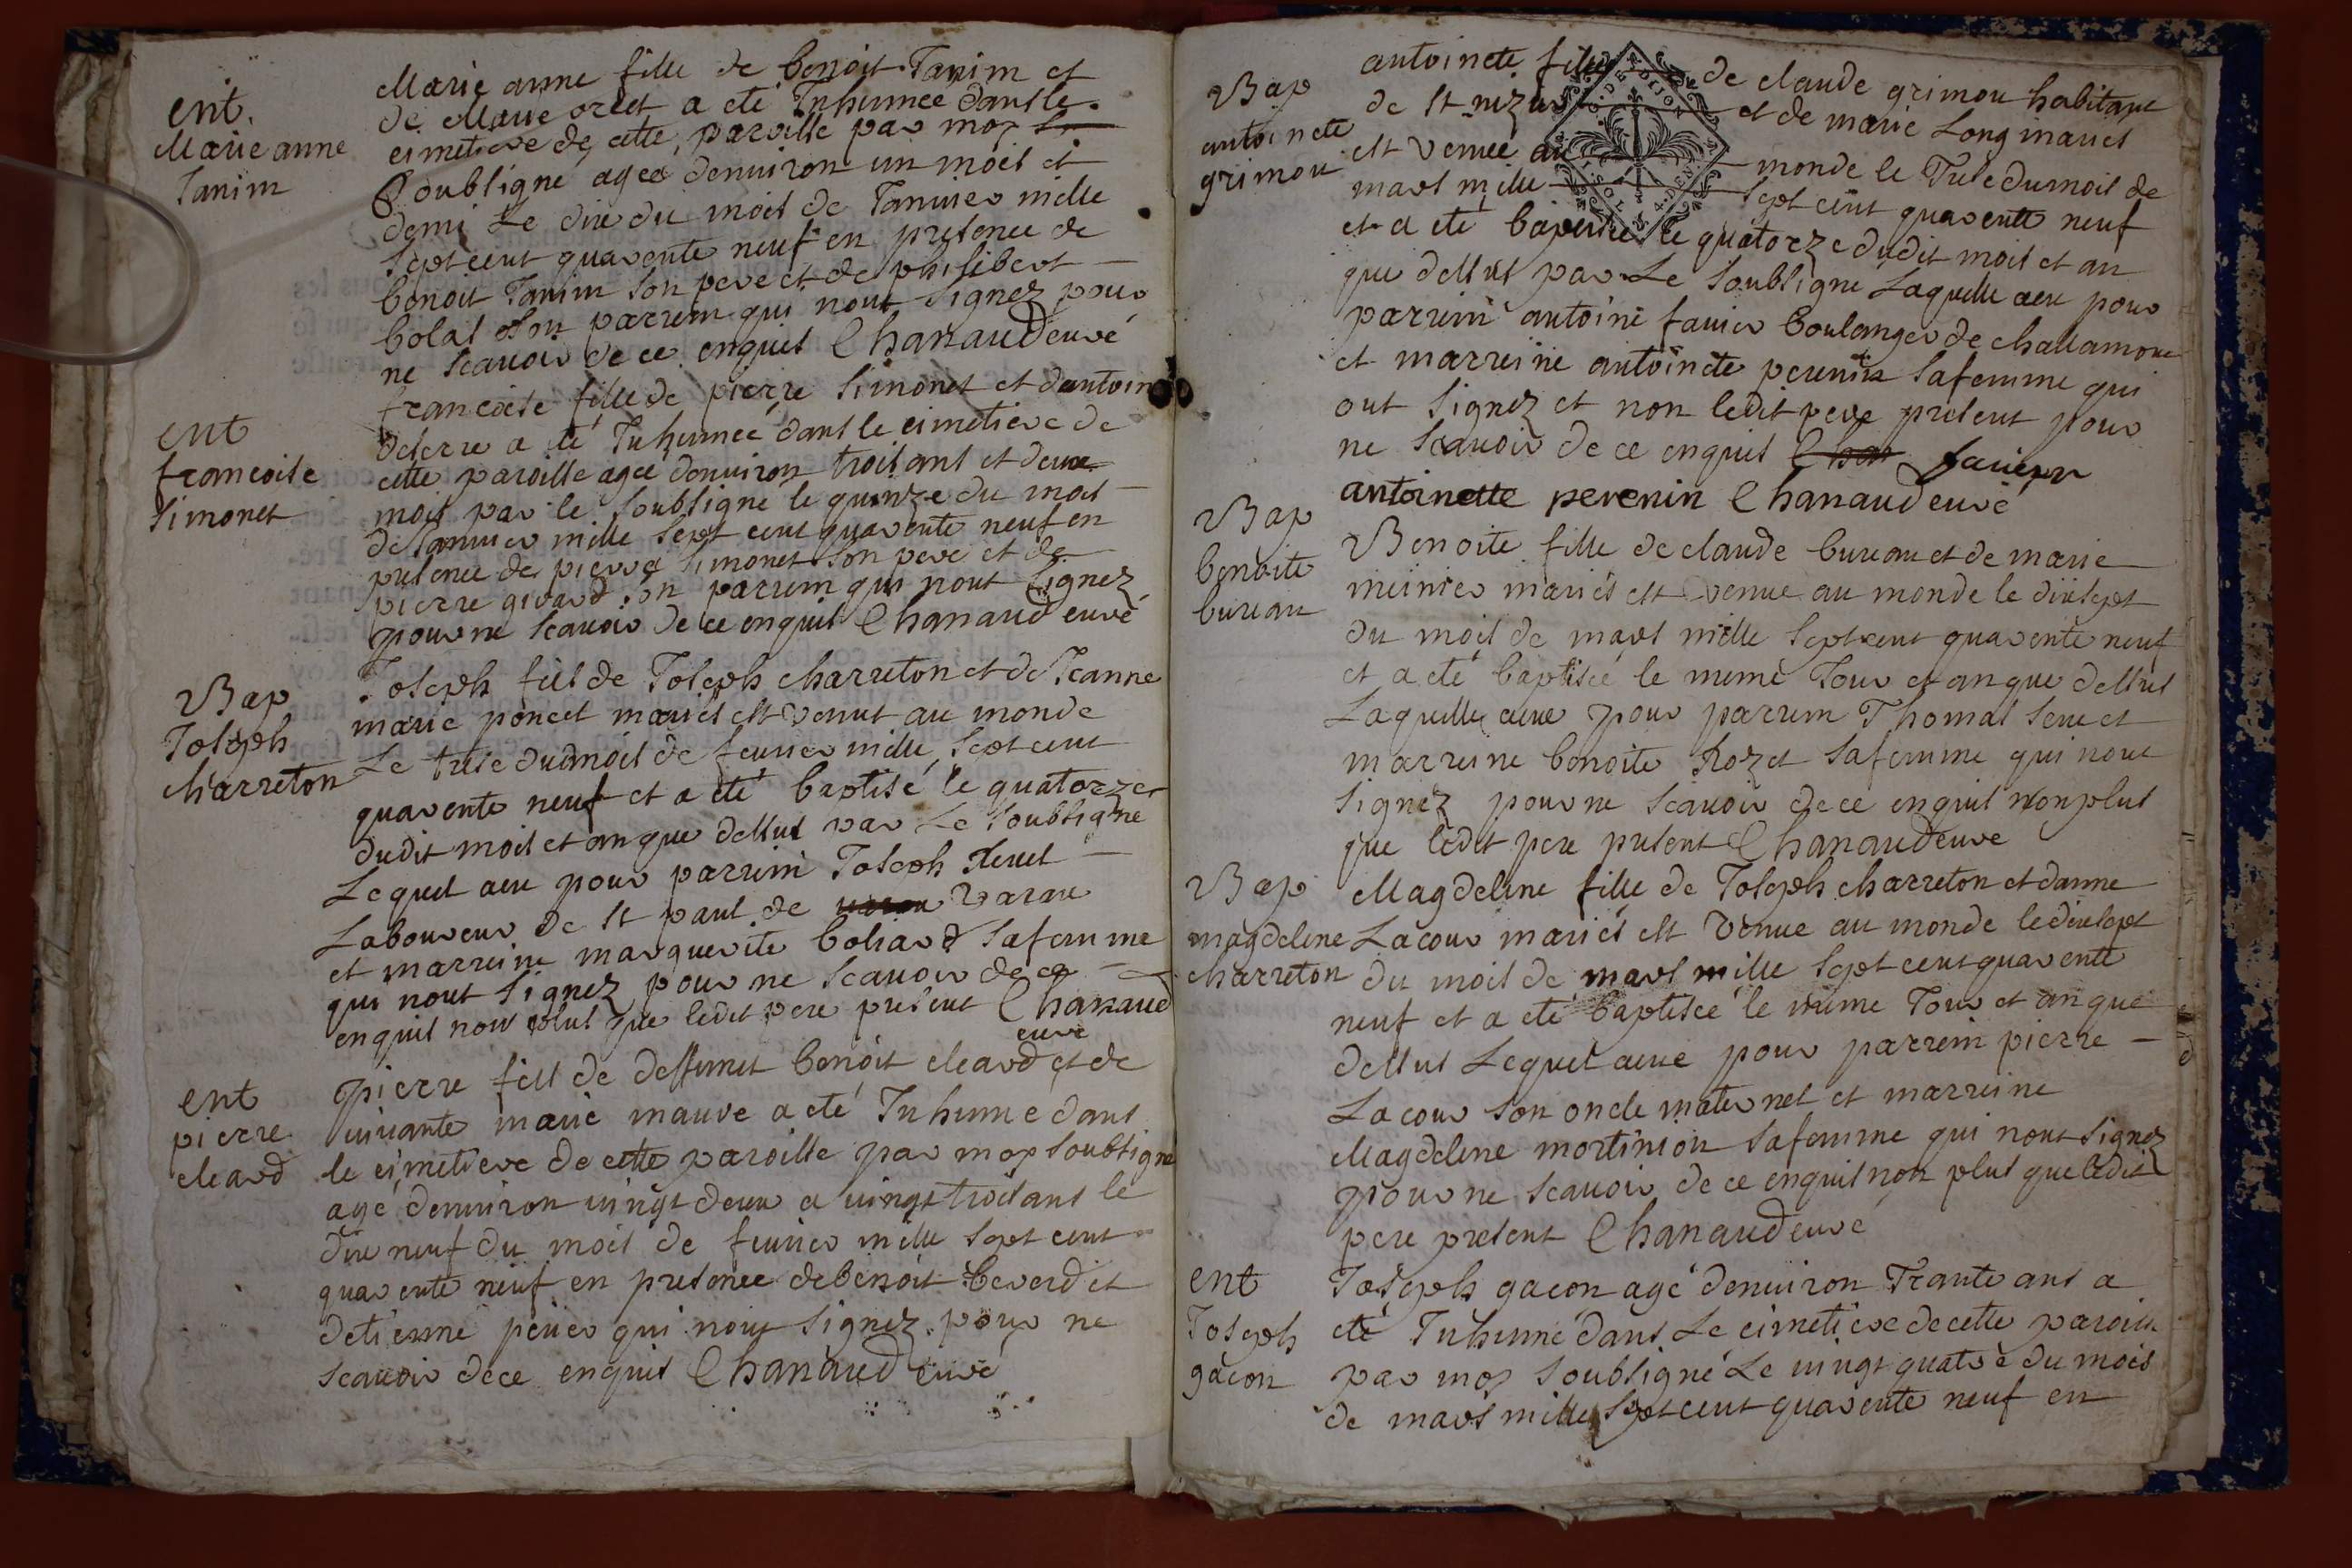 ent.
Marie anne
Janim
Marie anne fille de benoit Janim et
de Marie oret a eté Inhumée dans le
cimetiere de cette paroisse par moy
soubsigné agée denuiron un mois et
demi Le dix du mois de Januier mille
sept cent quarente neuf en presence de
benoit Janim son pere et de philibert
bolas son parrein qui nont signez pour
ne scauoir de ce enquis Chanaud curé
ent
francoise
simonet
francoise fille de pierre simonet et dantoin
deserre a eté Inhumée dans le cimetiere de
cette paroisse agée denuiron trois ans et deux
mois par le soubsigné le quinze du mois
de Januier mille sept cent quarente neuf en
presence de pierre simonet son pere et de
pierre girard son parrein qui nont signez
pour ne scauoir de ce enquis Chanaud curé
Bap
Joseph
charreton
Joseph fils de Joseph charreton et de Jeanne
marie poncet mariés est venut au monde
Le treise du mois de feurier mille sept cent
quarente neuf et a eté baptisé le quatorze
dudit mois et an que dessus par Le soubsigné
Lequel a eu pour parrein Joseph
Laboureur de st paul de varax
et marreine marguerite boliard sa femme
qui nont signez pour ne scauoir de ce
enquis non plus que ledit pere present Chanaud
curé
ent
pierre
cleard
pierre fils de deffunct benoit cleard et de
viuante marie mauve a eté Inhumé dans
le cimetiere de cette paroisse par moy soubsigné
agé denuiron vingt deux a vingt trois ans le
dix neuf du mois de feurier mille sept cent
quarente neuf en presence de benoit beverd et
detienne perier qui nont signez pour ne
scauoir de ce enquis Chanaud curé
G. DE DIJON
SOL 4 DEN.
Bap
antoinete
grimou
antoinete fille de claude grimou habitant
de st nizier et de marie Long mariés
est venue au monde le Treise du mois de
mars mille sept cent quarente neuf
et a eté baptisée le quatorze dudit mois et an
que dessus par Le soubsigné Laquelle a eu pour
parrein antoine fauier boulanger de challamone
et marreine antoinete perenin sa femme qui
ont signez et non ledit pere present pour
ne scauoir de ce enquis Chan fauier
antoinette perenin Chanaud curé
Bap
benoite
bureau
Benoite fille de claude bureau et de marie
meinier mariés est venue au monde le dixsept
du mois de mars mille sept cent quarente neuf
et a eté baptisée le meme Jour et an que dessus
Laquelle a eue pour parrein Thomas seruet
marreine benoite Rozet sa femme qui nont
signez pour ne scauoir de ce enquis non plus
que ledit pere present Chanaud curé
Bap
magdeleine
charreton
Magdeleine fille de Joseph charreton et danne
Lacour mariés est venue au monde le dixsept
du mois de mars mille sept cent quarente
neuf et a eté baptisée le meme Jour et an que
dessus Lequel a eue pour parrein pierre
Lacour son oncle maternel et marreine
Magdeleine mortinion sa femme qui nont signez
pour ne scauoir de ce enquis non plus que ledit
pere present Chanaud curé
ent
Joseph
gacon
Joseph gacon agé denuiron Trante ans a
eté Inhumé dans Le cimetiere de cette paroisse
par moy soubsigné Le vingt quatre du mois
de mars mille sept cent quarente neuf en